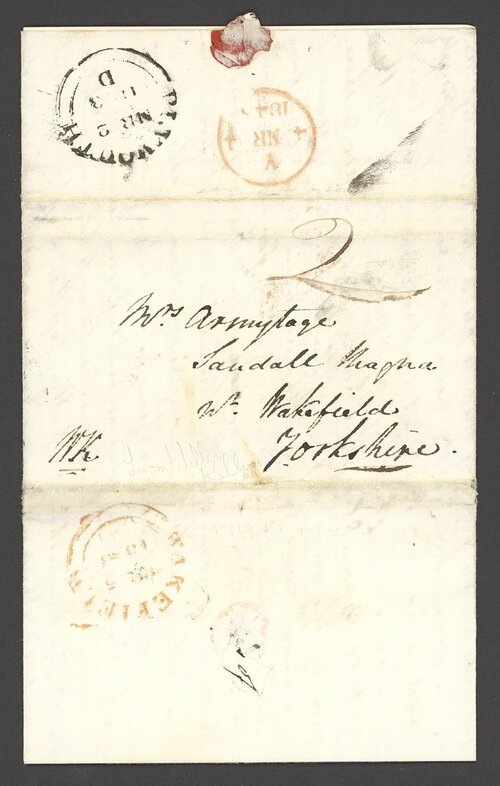 PLYMOUTH
MR 2
D
A
MR
4 4
2
Mrs Armytage
Sandall Magna
Nr. Wakefield
Yorkshire.
WK
WAKEFIELD